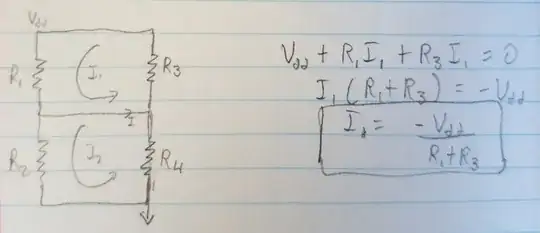 Vdd
R1 I1 R3
I
R2 I2 R4
Vdd + R1I1 + R3I1 = 0
I1(R1+R3) = -Vdd
I1 = -Vdd / R1+R3